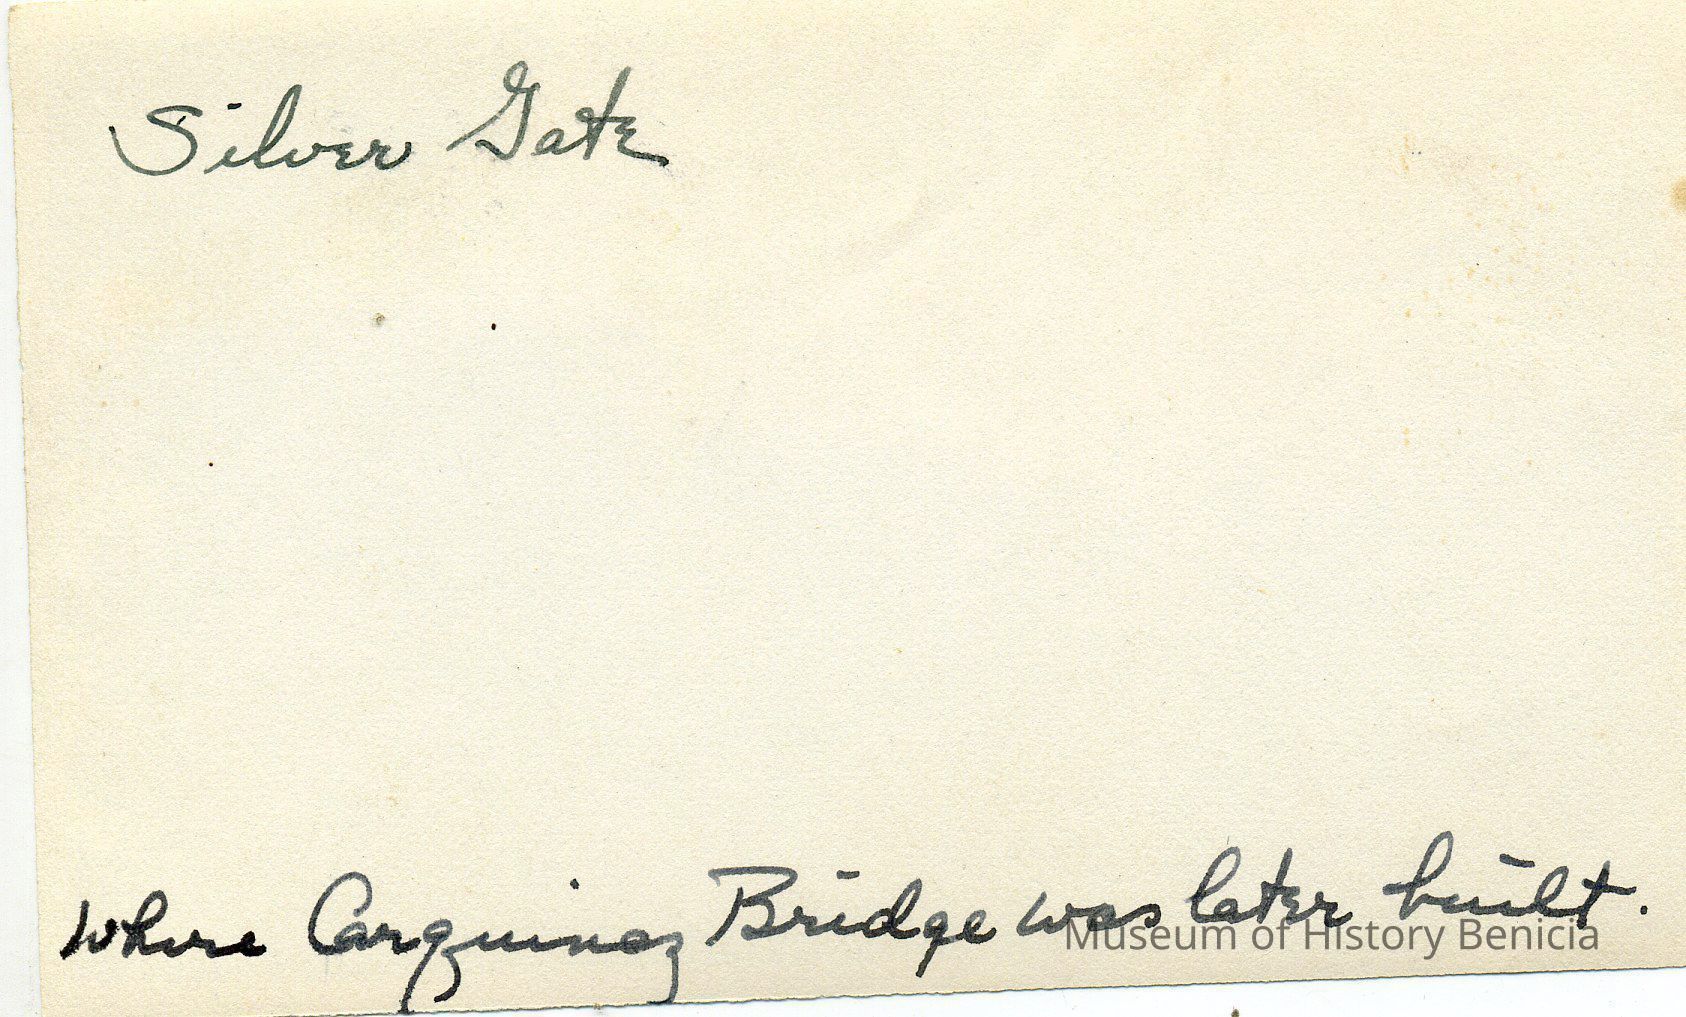 Silver Gate
where Carquinez Bridge was later built.
Museum of History Benicia